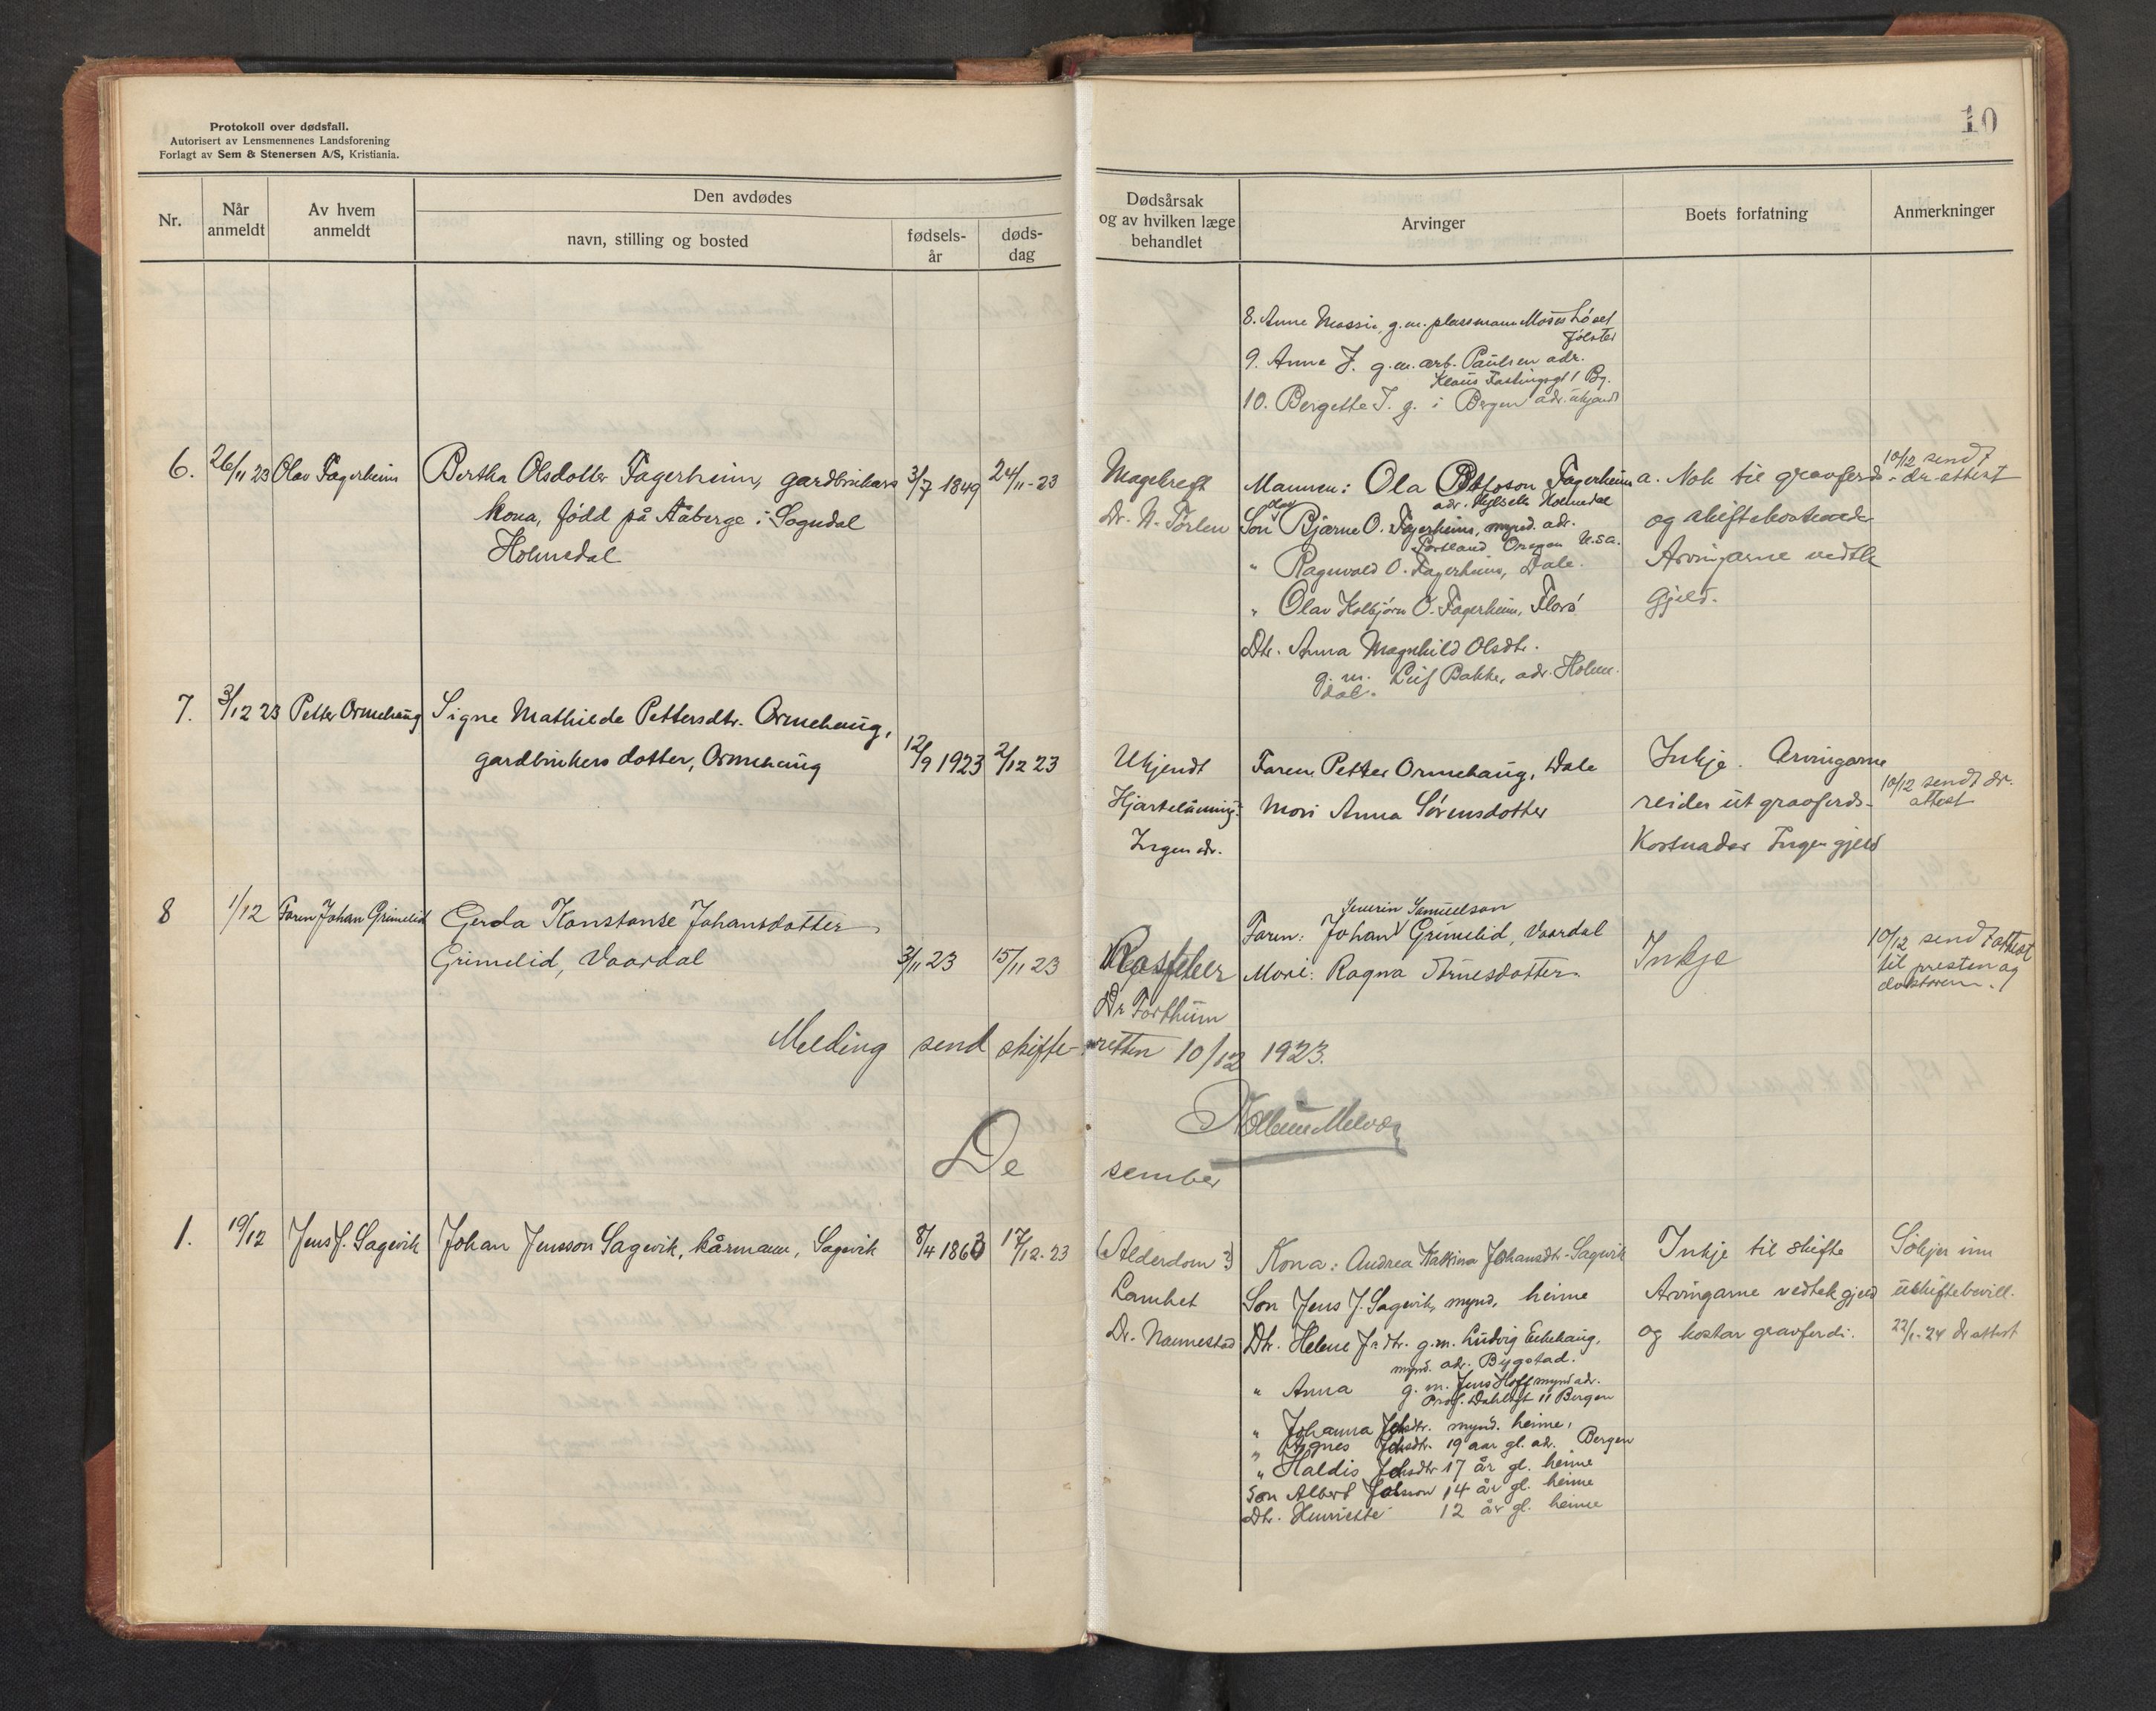 Protokoll over dødsfall.
Autorisert av Lensmennenes Landsforening
Forlagt av Sem & Stenersen A/S, Kristiania.
10
Nr.
Når anmeldt
Av hvem anmeldt
Den avdødes
navn, stilling og bosted
fødsels-år
døds-dag
Dødsårsak og av hvilken læge behandlet
Arvinger
Boets forfatning
Anmerkninger
8. Anne Massie, g.m. plassmann Moses Løset
Jølster
9. Anne J. g.m. arb. Paulsen adr.
Klaus Fastingsgt 1 Bg.
10. Bergette J. g. i Bergen adr. ukjendt
6. 26/11 23 Olav Fagerheim
Bertha Olsdotter Fagerheim, gardbrukars 3/7 1849 24/11-23
kona, fødd på Aaberge i Sogndal
Holmedal
Magekreft
Dr. N. Torlen
Mannen: Ola Fagerheim
adr. Holmedal
Son Olav Bjarne O. Fagerheim, mynd. adr.
Portland Oregon U.S.a.
" Ragnvald O. Fagerheim, Dale.
" Olav Kolbjørn O. Fagerheim, Florø
Dtr. Anna Magnhild Olsdtr.
g.m. Leif Bakke, adr. Holme-
dal.
a. Nok til gravferds-
og skiftekostnader
Arvingarne vedtek
gjeld.
10/12 sendt
dr. attest
7. 3/12 23 Petter Ormehaug
Signe Mathilde Pettersdtr. Ormehaug,
gardbrukers dotter, Ormehaug
12/9 1923 2/12 23
Ukjendt
Hjartelamming?
Ingen dr.
Faren Petter Ormehaug, Dale
Mori Anna Sørensdotter
Inkje. Arvingarne
reider ut gravferds-
kostnader Ingen gjeld
10/12 sendt dr.
attest
8 1/12 Faren Johan Grimelid
Gerda Konstanse Johansdotter
Grimelid, Vaardal
3/11 23 15/11 23
Dr Forthun
Severin Samuelson
Faren: Johan Grimelid, Vaardal
Mori: Ragna Arnesdotter.
Inkje
10/12 sendt attest
til presten og
doktoren.
Melding send skifte-retten 10/12 1923.
De sember
1. 19/12 Jens J. Sagevik
Johan Jensson Sagevik, kårmann, Sagevik
8/4 1863 17/12-23
(Alderdom?)
Lamhet
Dr. Nannestad
Kona: Andrea Katrina Johansdtr. Sagevik
Son Jens J. Sagevik, mynd, heime
Dtr. Helene J.dtr. g.m. Ludvig Eikehaug,
mynd. adr. Bygstad.
" Anna g.m. Jens Hoff mynd adr.
Prof. Dahlsgt 11 Bergen
" Johanna Johsdtr. mynd. heime,
" Agnes Johsdtr. 19 aar gl. adr. Bergen
" Haldis Johsdtr 17 år gl. heime
Son Albert Johsson 14 år gl. heime
Dtr. Henriette 12 år gl. heime
Inkje til skifte
Arvingarne vedtek gjeld
og kostar gravferdi.
Søkjer um
uskiftebevill.
22/1-24 dr attest